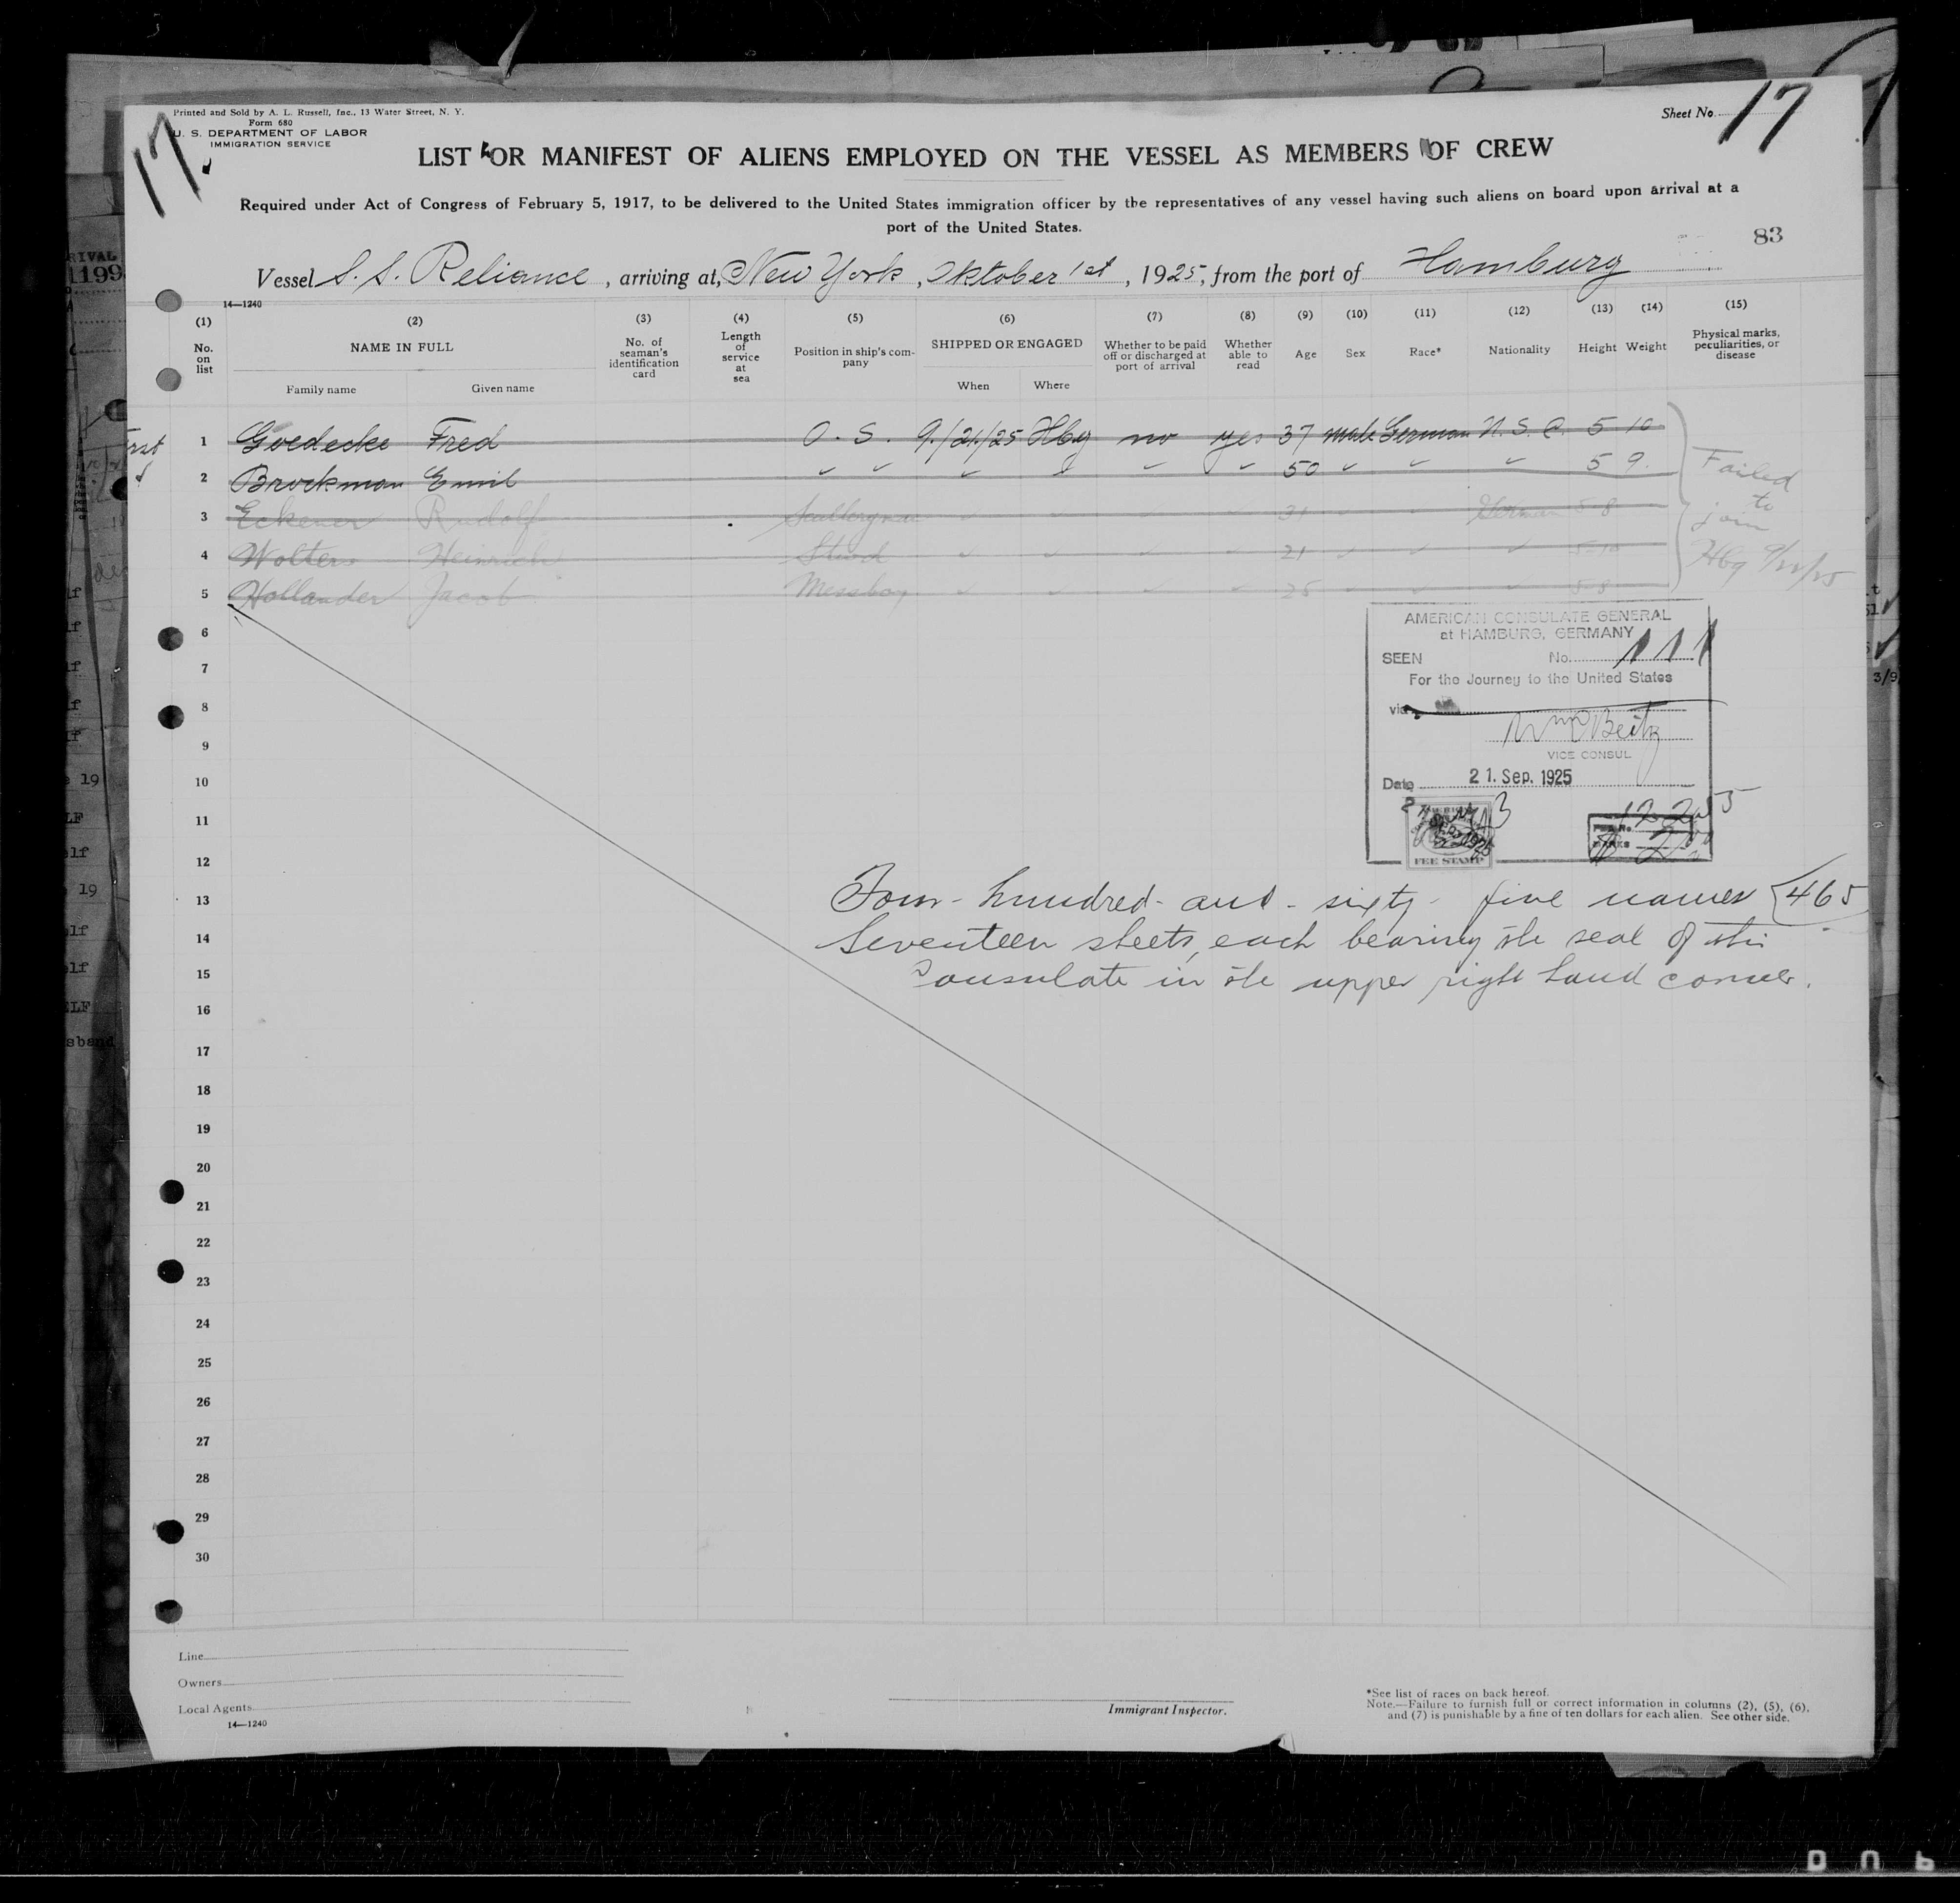 Printed and Sold by A. L. Russell, Inc., 13 Water Street, N. Y.
Form 680
U. S. DEPARTMENT OF LABOR
IMMIGRATION SERVICE
17
Sheet No. 17
LIST OR MANIFEST OF ALIENS EMPLOYED ON THE VESSEL AS MEMBERS OF CREW
Required under Act of Congress of February 5, 1917, to be delivered to the United States immigration officer by the representatives of any vessel having such aliens on board upon arrival at a
port of the United States.
83
Vessel S. S. Reliance, arriving at, New York, Oktober 1st, 1925, from the port of Hamburg
14—1240
(1) (2) (3) (4) (5) (6) (7) (8) (9) (10) (11) (12) (13) (14) (15)
No. on list
NAME IN FULL
Family name Given name
No. of seaman's identification card
Length of service at sea
Position in ship's com-pany
SHIPPED OR ENGAGED
When Where
Whether to be paid off or discharged at port of arrival
Whether able to read
Age
Sex
Race*
Nationality
Height
Weight
Physical marks, peculiarities, or disease
1 Goedecke Fred O. S. 9/21/25 Hbg no yes 37 male German U. S. C. 5 10
2 Brockman Emil ✓ ✓ ✓ ✓ ✓ ✓ 50 ✓ ✓ ✓ 5 9
3 Eckener Rudolf Sculleryman ✓ ✓ ✓ ✓ 31 German 5 8
4 Wolters Heinrich Stwd ✓ ✓ ✓ ✓ 21 ✓ ✓ ✓ 5 10
5 Hollander Jacob Messboy ✓ ✓ ✓ ✓ 25 ✓ ✓ ✓ 5 8
Failed
to
join
Hbg 9/22/25
6
7
8
9
10
11
12
13
14
15
16
17
18
19
20
21
22
23
24
25
26
27
28
29
30
AMERICAN CONSULATE GENERAL
at HAMBURG, GERMANY
SEEN No. 111
For the Journey to the United States
via
VICE CONSUL
Date 21. Sep. 1925
FEE STAMP
Four-hundred-and-sixty-five names {465
Seventeen sheets, each bearing the seal of this
Consulate in the upper right hand corner.
Line
Owners
Local Agents
14—1240
Immigrant Inspector.
*See list of races on back hereof.
Note.—Failure to furnish full or correct information in columns (2), (5), (6),
and (7) is punishable by a fine of ten dollars for each alien. See other side.